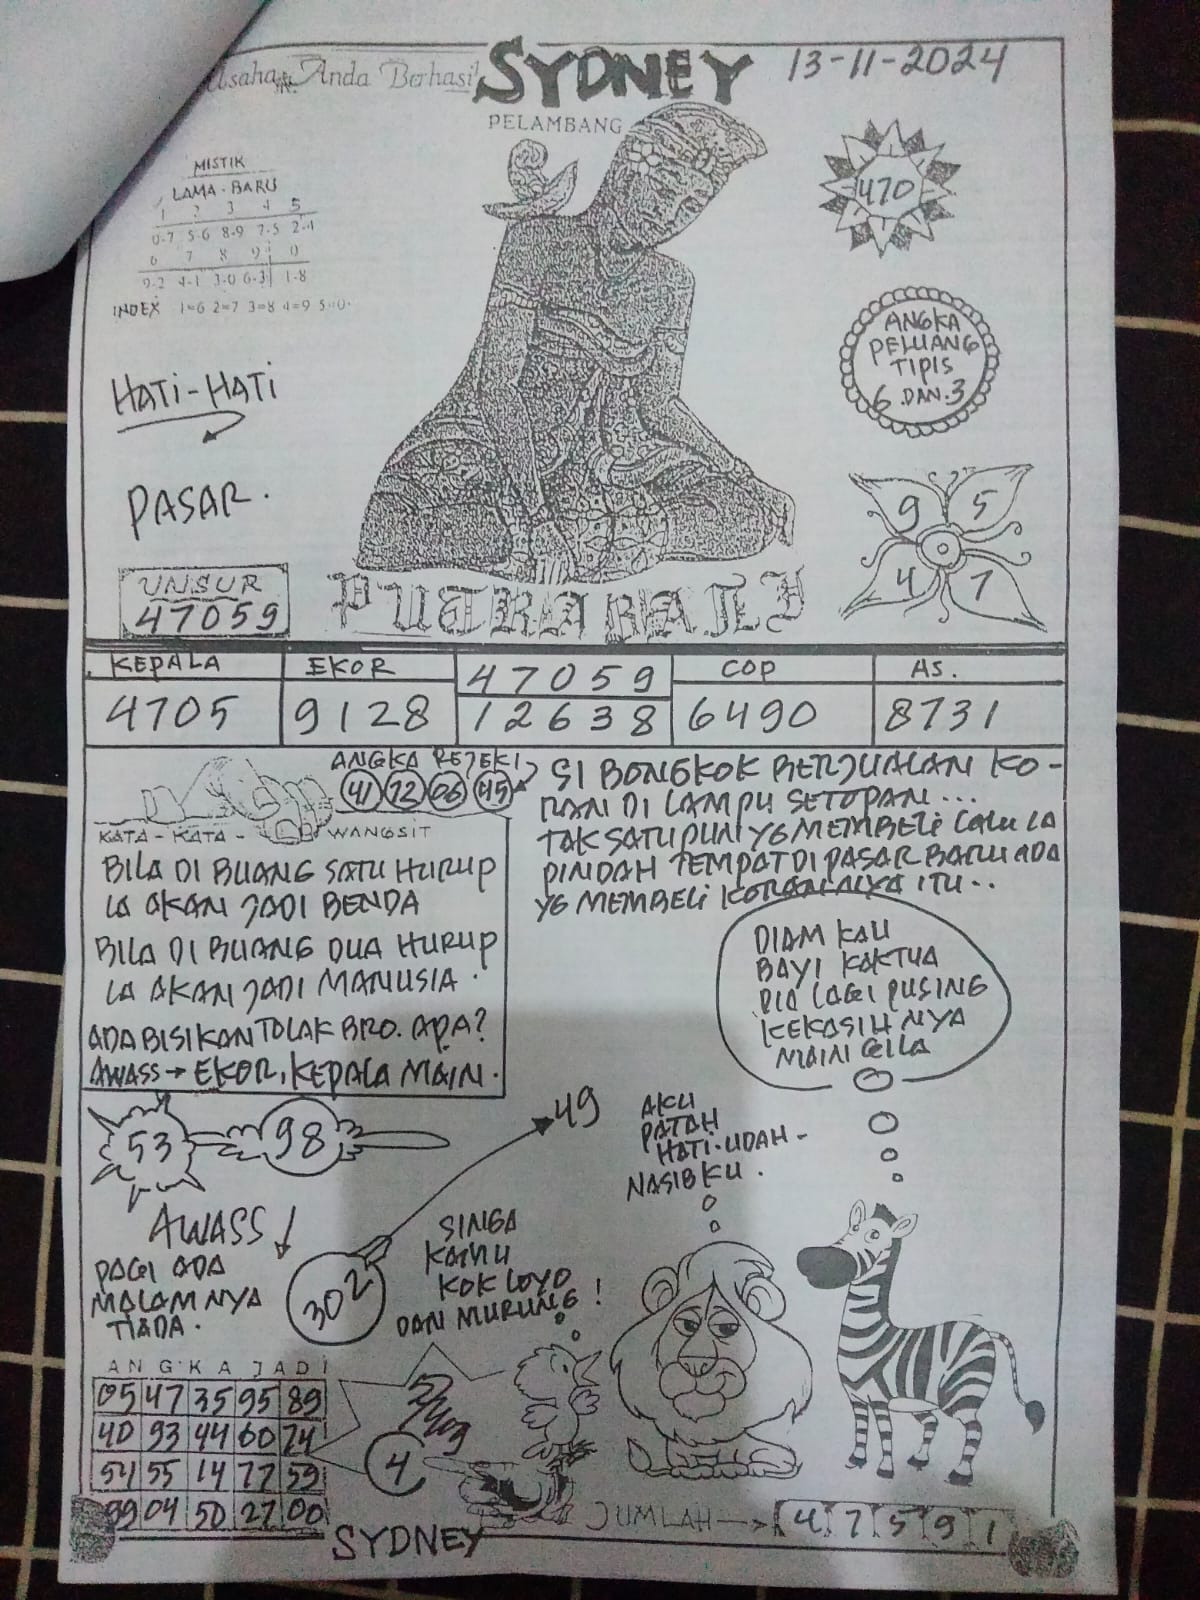 Usaha Anda Berhasil
SYDNEY
13-11-2024
PELAMBANG
MISTIK
LAMA - BARU
1 2 3 4 5
0-7 5-6 8-9 7-5 2-4
6 7 8 9 0
9-2 4-1 3-0 6-3 1-8
INDEX 1=6 2=7 3=8 4=9 5=0
470
ANGKA
PELUANG
TIPIS
6 DAN 3
HATI-HATI
PASAR.
9 5
4 7
UNSUR
47059
PUTRA BALI
KEPALA EKOR 47059 COP AS.
4705 9128 12638 6490 8731
ANGKA REJEKI
41 72 06 45
KATA - KATA - WANGSIT
BILA DI BUANG SATU HURUP
IA AKAN JADI BENDA
BILA DI BUANG DUA HURUP
IA AKAN JADI MANUSIA.
ADA BISIKAN TOLAK BRO. APA?
AWASS → EKOR, KEPALA MAIN.
SI BONGKOK BERJUALAN KO-
RAN DI LAMPU SETOPAN...
TAK SATUPUN YG MEMBELI LALU IA
PINDAH TEMPAT DI PASAR BARU ADA
YG MEMBELI KORANNYA ITU..
DIAM KAU
BAYI KAKTUA
DIA LAGI PUSING
KEKASIHNYA
MAIN GILA
53 98
49
AKU
PATAH
HATI-UDAH-
NASIBKU.
AWASS ↓
PAGI ADA
MALAM NYA
TIADA.
302
SINGA
KAMU
KOK LOYO
DAN MURUNG !
ANGKA JADI
05 47 35 95 89
40 93 44 60 74
54 55 14 77 59
99 04 50 27 00
4
JUMLAH → 4 7 5 9 1
SYDNEY